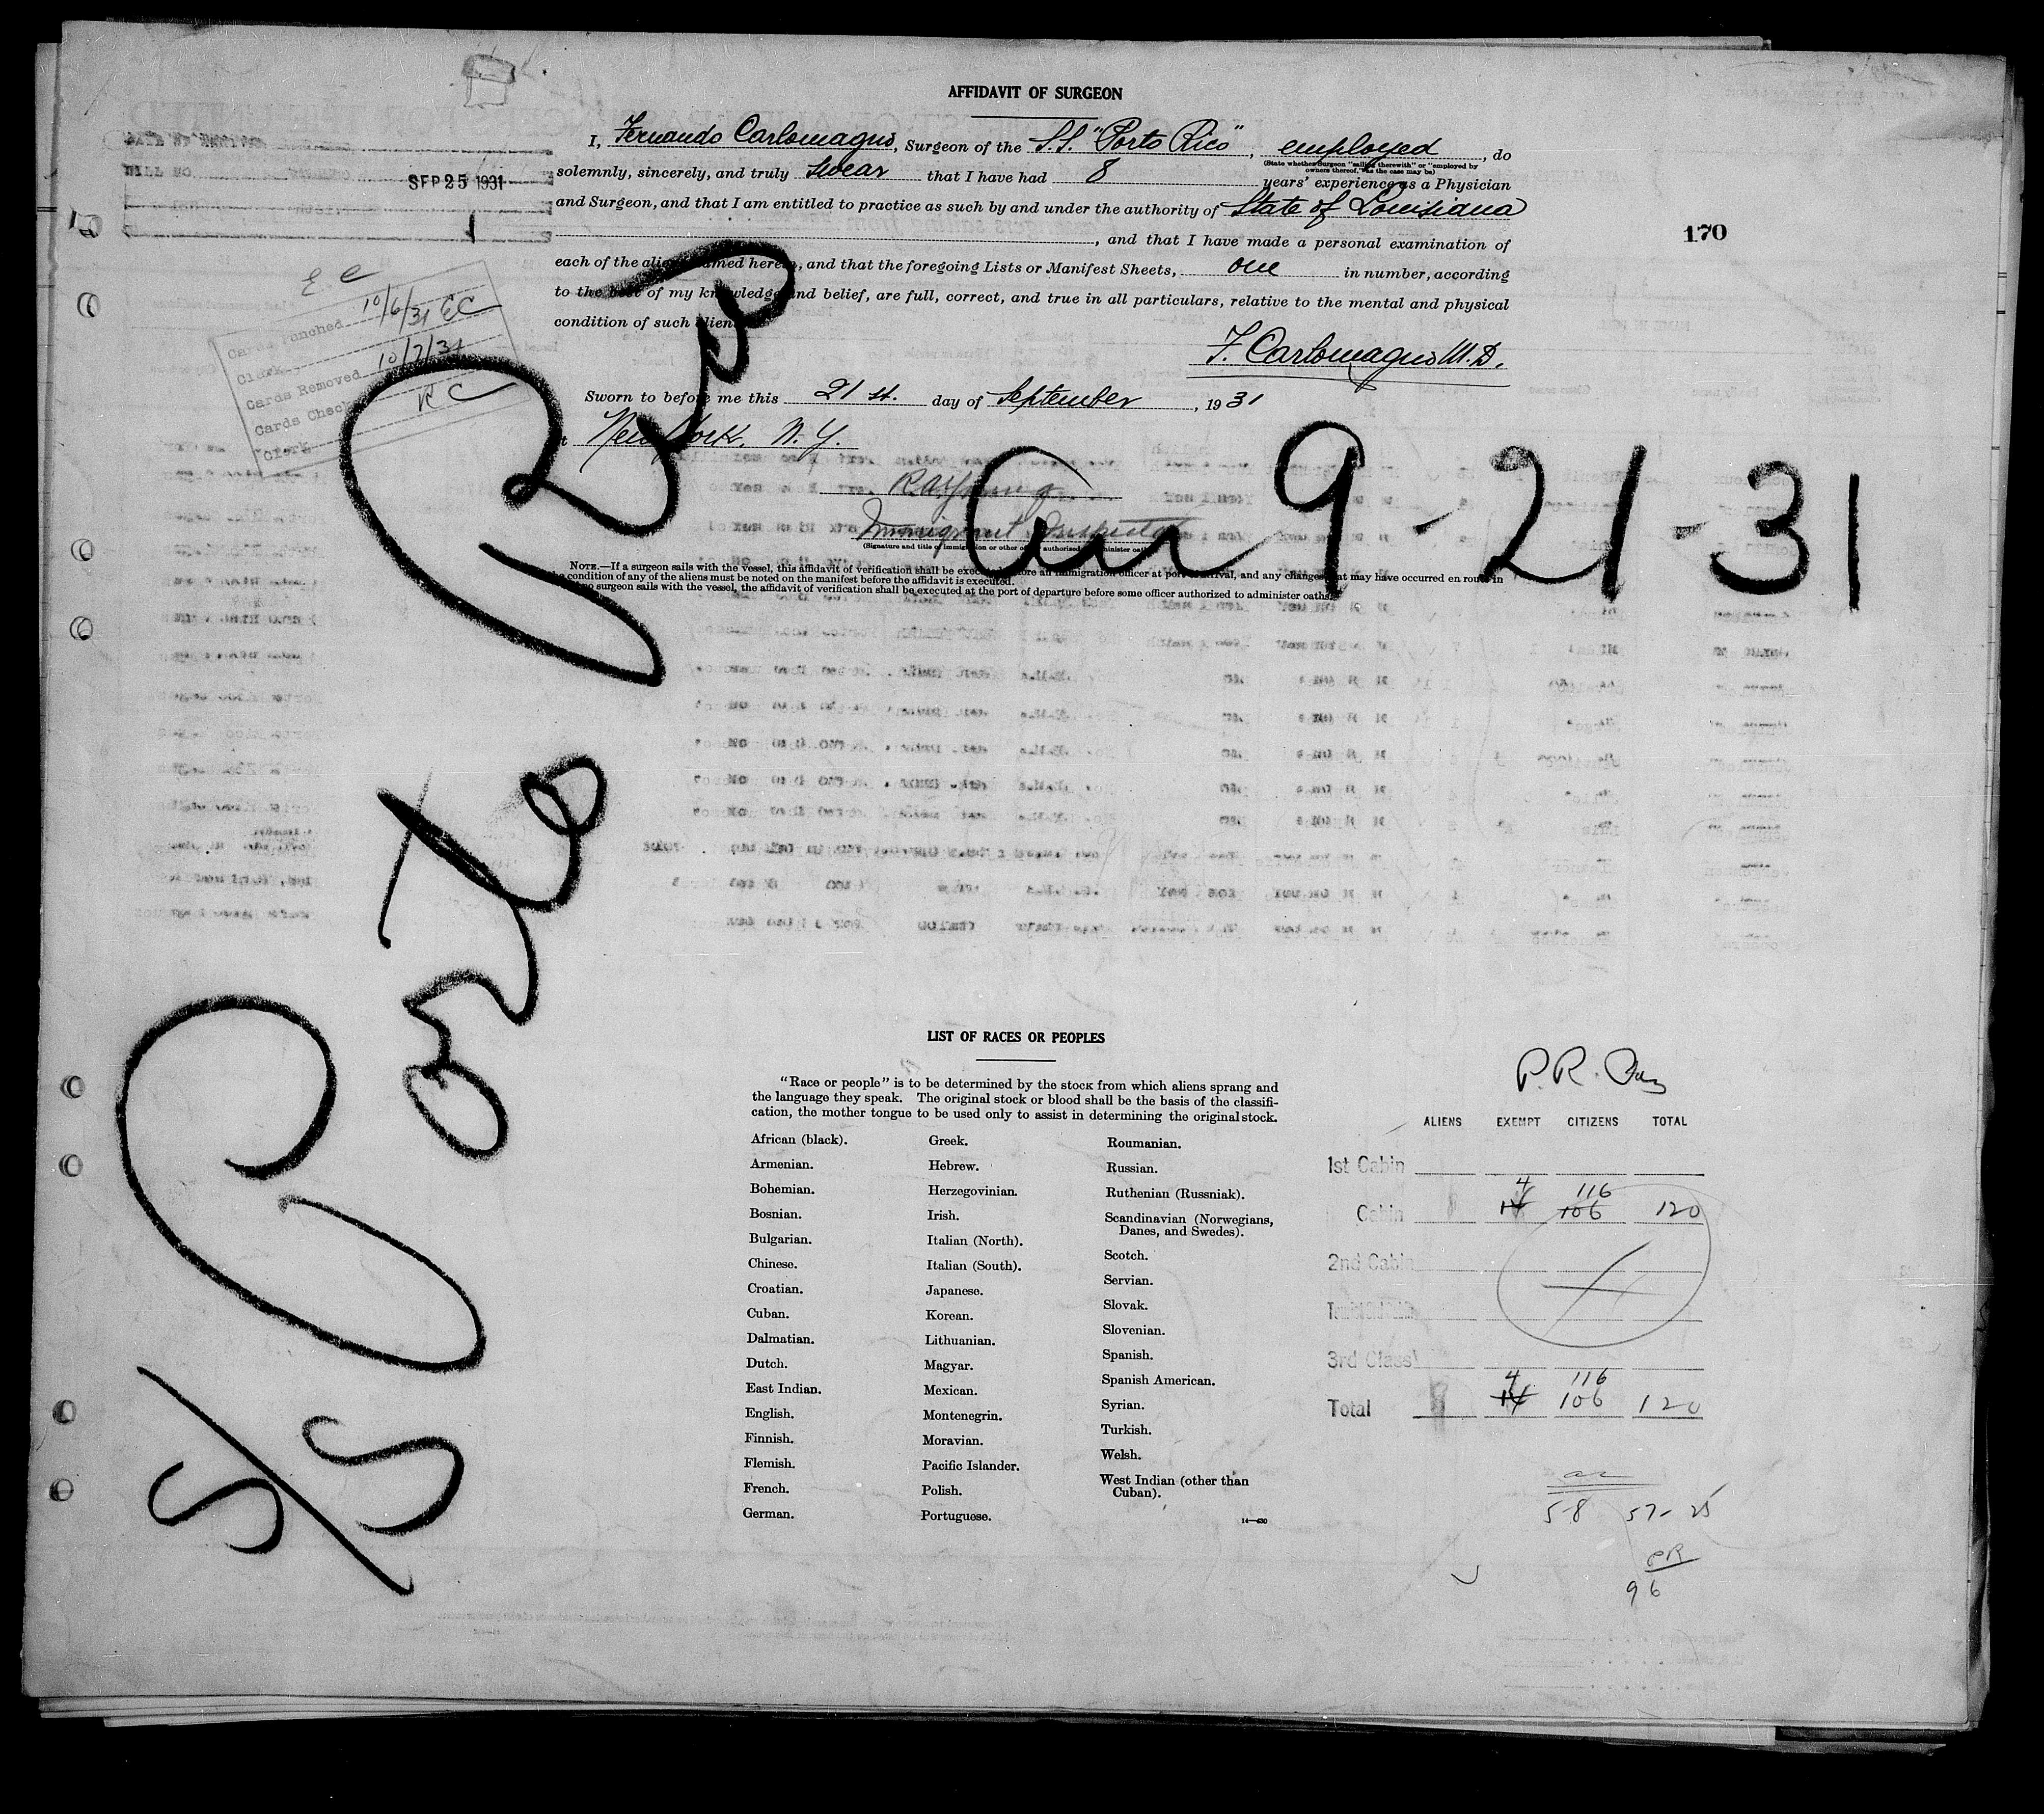 AFFIDAVIT OF SURGEON
I, Fernando Carlomagno, Surgeon of the S.S. "Porto Rico", employed, do
(State whether Surgeon "sailing therewith" or "employed by
owners thereof," as the case may be)
solemnly, sincerely, and truly swear that I have had 8 years' experience as a Physician
and Surgeon, and that I am entitled to practice as such by and under the authority of State of Louisiana
, and that I have made a personal examination of
each of the aliens named herein, and that the foregoing Lists or Manifest Sheets, one in number, according
to the best of my knowledge and belief, are full, correct, and true in all particulars, relative to the mental and physical
condition of such aliens
F. Carlomagno M.D.
Sworn to before me this 21 st. day of September, 1931
at New York, N.Y.
Immigrant Inspector
(Signature and title of immigration or other officer authorized to administer oaths)
NOTE.—If a surgeon sails with the vessel, this affidavit of verification shall be executed before an immigration officer at port of arrival, and any changes that may have occurred en route in
the condition of any of the aliens must be noted on the manifest before the affidavit is executed.
If no surgeon sails with the vessel, the affidavit of verification shall be executed at the port of departure before some officer authorized to administer oaths.
SEP 25 1931
1
170
E C
Cards Punched 10/6/31 EC
Clerk
Cards Removed 10/7/31
Cards Check RC
Clerk
S/S Porto Rico
Arr 9-21-31
LIST OF RACES OR PEOPLES
"Race or people" is to be determined by the stock from which aliens sprang and
the language they speak. The original stock or blood shall be the basis of the classifi-
cation, the mother tongue to be used only to assist in determining the original stock.
African (black).
Armenian.
Bohemian.
Bosnian.
Bulgarian.
Chinese.
Croatian.
Cuban.
Dalmatian.
Dutch.
East Indian.
English.
Finnish.
Flemish.
French.
German.
Greek.
Hebrew.
Herzegovinian.
Irish.
Italian (North).
Italian (South).
Japanese.
Korean.
Lithuanian.
Magyar.
Mexican.
Montenegrin.
Moravian.
Pacific Islander.
Polish.
Portuguese.
Roumanian.
Russian.
Ruthenian (Russniak).
Scandinavian (Norwegians,
Danes, and Swedes).
Scotch.
Servian.
Slovak.
Slovenian.
Spanish.
Spanish American.
Syrian.
Turkish.
Welsh.
West Indian (other than
Cuban).
14—430
P.R.
ALIENS EXEMPT CITIZENS TOTAL
1st Cabin
4 116
Cabin 14 106 120
2nd Cabin
3rd Class
4 116
Total 14 106 120
58 57-25
PR
96